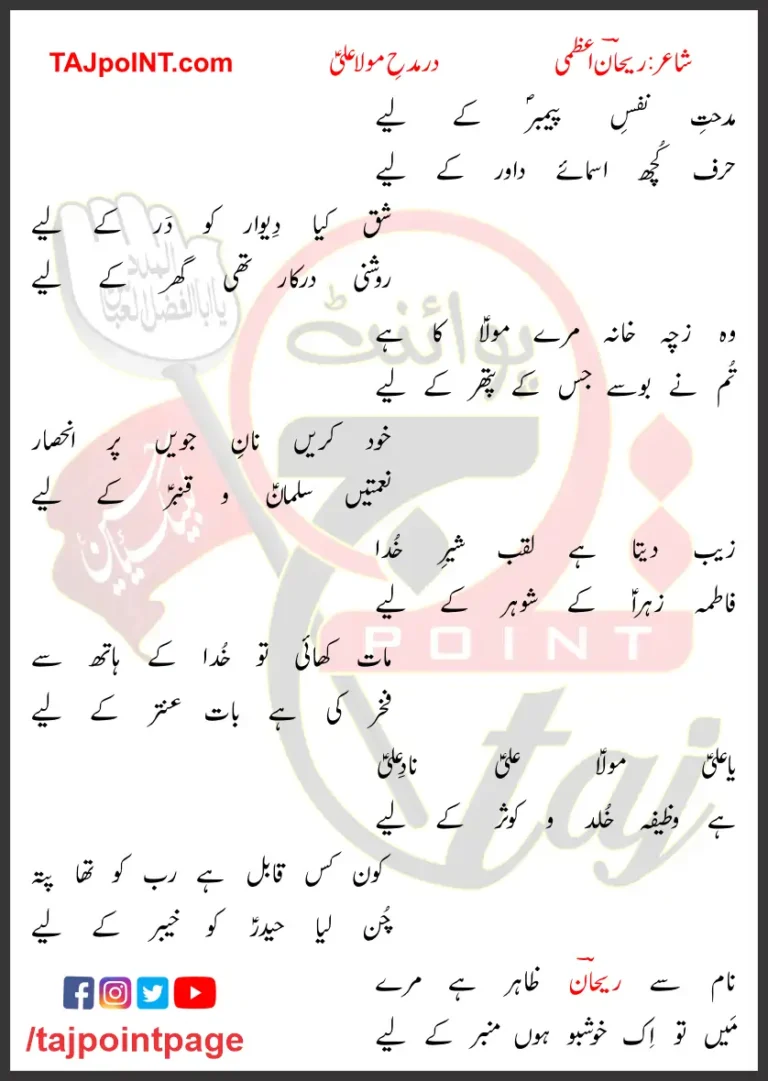 شاعر: ریحانؔ اعظمی درمدحِ مولا علیؑ TAJpoINT.com
مدحتِ نفسِ پیمبرؐ کے لیے
حرف کُچھ اسمائے داور کے لیے
شق کیا دِیوار کو دَر کے لیے
روشنی درکار تھی گھر کے لیے
وہ زچہ خانہ مرے مولاؑ کا ہے
تُم نے بوسے جس کے پتھر کے لیے
خود کریں نانِ جویں پر انحصار
نعمتیں سلمانؑ و قنبرؑ کے لیے
زیب دیتا ہے لقب شیرِ خُدا
فاطمہ زہراؑ کے شوہر کے لیے
مات کھائی تو خُدا کے ہاتھ سے
فخر کی ہے بات عنتر کے لیے
یاعلیؑ مولاؑ علیؑ نادِعلیؑ
ہے وظیفہ خُلد و کوثر کے لیے
کون کس قابل ہے رب کو تھا پتہ
چُن لیا حیدرؑ کو خیبر کے لیے
نام سے ریحانؔ ظاہر ہے مرے
مَیں تو اِک خوشبو ہوں منبر کے لیے
/tajpointpage
پوائنٹ
تاج
POINT
taj
المدد
یا ابا الفضل العباس
لبیک یا حسین